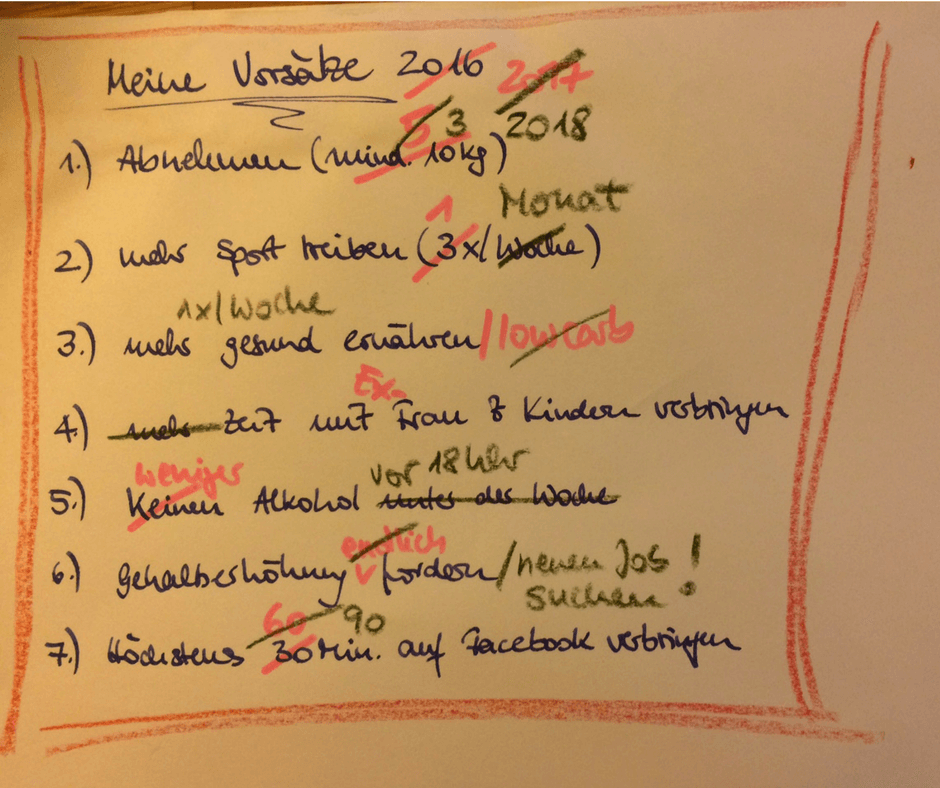 Meine Vorsätze 2016 2017
5 3 2018
1.) Abnehmen (mind. 10kg)
1 Monat
2.) mehr Sport treiben (3x/Woche)
1x/Woche
3.) mehr gesund ernähren/lowcarb
Ex-
4.) mehr Zeit mit Frau & Kindern verbringen
weniger vor 18 Uhr
5.) Keinen Alkohol unter der Woche
endlich
6.) Gehaltserhöhung fordern/neuen Job
suchen!
60 90
7.) Höchstens 30 Min. auf Facebook verbringen